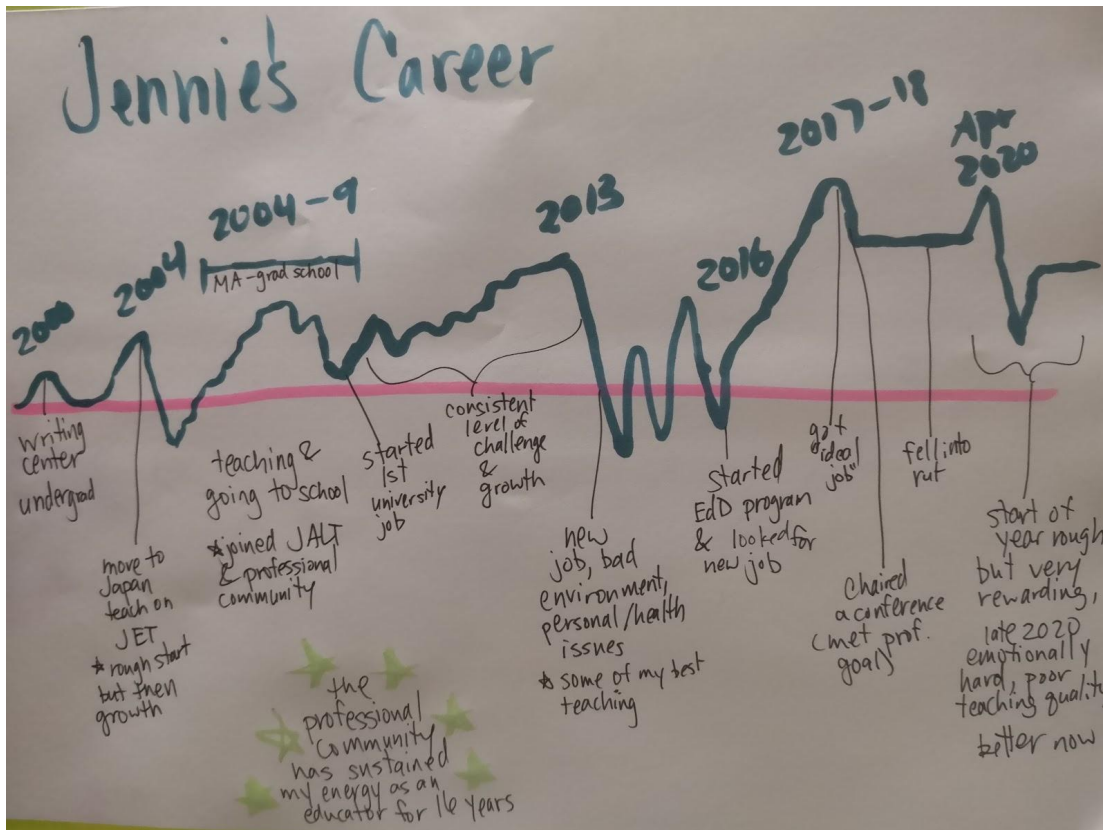 Jennie's Career
2000
2004
2004-9
MA-grad school
2013
2016
2017-18
Apr
2020
writing
center
undergrad
move to
Japan
teach on
JET
* rough start
but then
growth
teaching &
going to school
* joined JALT
& professional
community
started
1st
university
job
consistent
level of
challenge
&
growth
new
job, bad
environment,
personal/health
issues
* some of my best
teaching
started
EdD program
& looked for
new job
got
"ideal
job"
Chaired
a conference
(met prof.
goal)
fell into
rut
start of
year rough
but very
rewarding,
late 2020
emotionally
hard, poor
teaching quality
better now
the
professional
community
has sustained
my energy as an
educator for 16 years